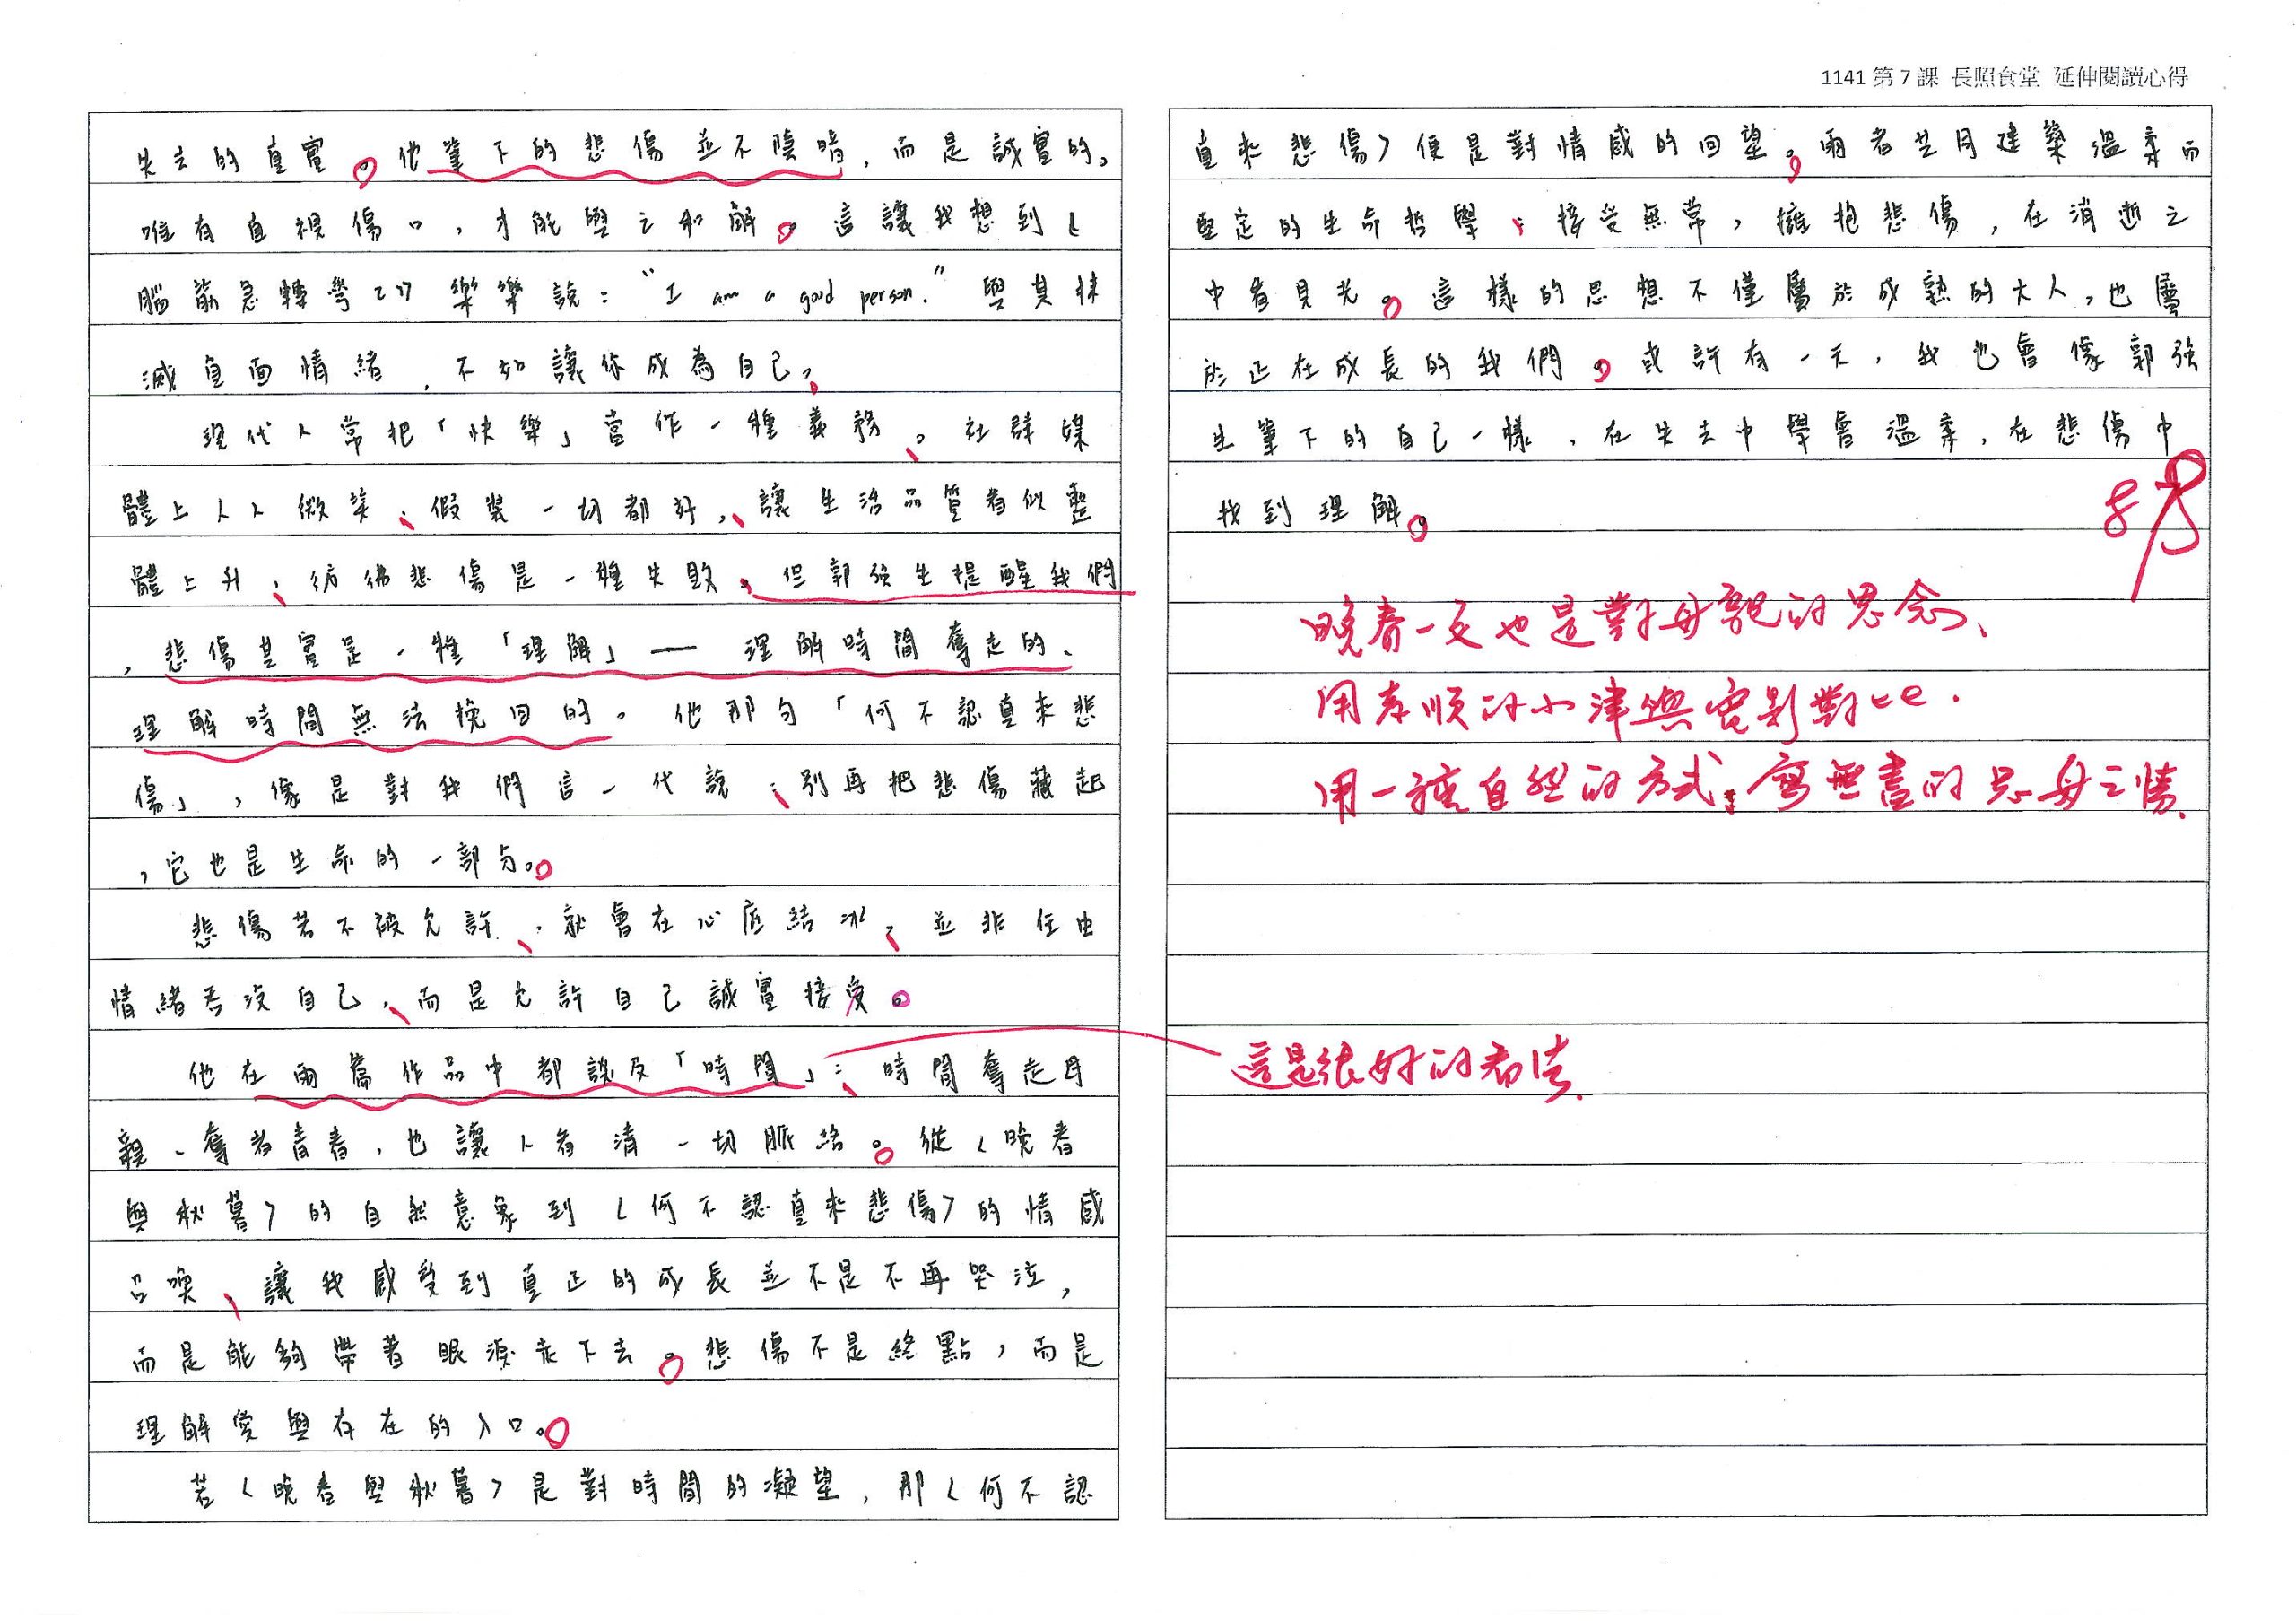 1141 第 7 課 長照食堂 延伸閱讀心得
失去的真實。他筆下的悲傷並不陰暗,而是誠實的。
唯有直視傷口,才能與之和解。這讓我想到〈
腦筋急轉彎2〉樂樂說:"I am a good person."與其抹
滅負面情緒,不如讓你成為自己。
現代人常把「快樂」當作一種義務。社群媒
體上人人微笑、假裝一切都好,讓生活品質看似整
體上升,彷彿悲傷是一種失敗。但郭強生提醒我們
,悲傷其實是一種「理解」—理解時間奪走的、
理解時間無法挽回的。他那句「何不認真來悲
傷」,像是對我們這一代說:別再把悲傷藏起
,它也是生命的一部分。
悲傷若不被允許,就會在心底結冰,並非任由
情緒吞沒自己,而是允許自己誠實接受。
他在兩篇作品中都談及「時間」:時間奪走母
親、奪者青春,也讓人看清一切脈絡。從〈晚春
與秋暮〉的自然意象到〈何不認真來悲傷〉的情感
召喚,讓我感受到真正的成長並不是不再哭泣,
而是能夠帶著眼淚走下去。悲傷不是終點,而是
理解愛與存在的入口。
若〈晚春與秋暮〉是對時間的凝望,那〈何不認
真來悲傷〉便是對情感的回望。兩者共同建築溫柔而
堅定的生命哲學:接受無常,擁抱悲傷,在消逝之
中看見光。這樣的思想不僅屬於成熟的大人,也屬
於正在成長的我們。或許有一天,我也會像郭強
生筆下的自己一樣,在失去中學會溫柔,在悲傷中
找到理解。
晚春一文也是對母親的思念、
用孝順的小津與電影對比.
用一種自然的方式,寫無盡的思母之情.
這是很好的看法.